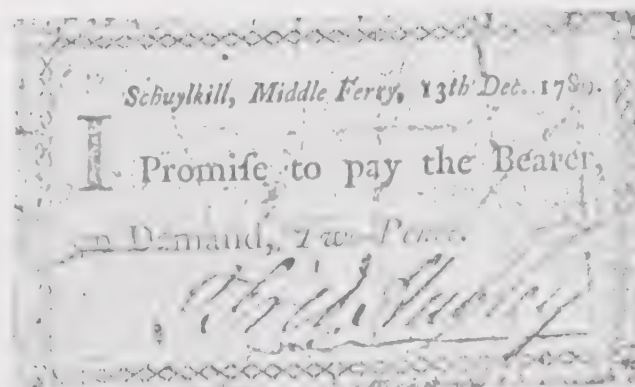 Schuylkill, Middle Ferry, 13th Dec. 1789.
I Promiſe to pay the Bearer,
on Demand, Two Pence.